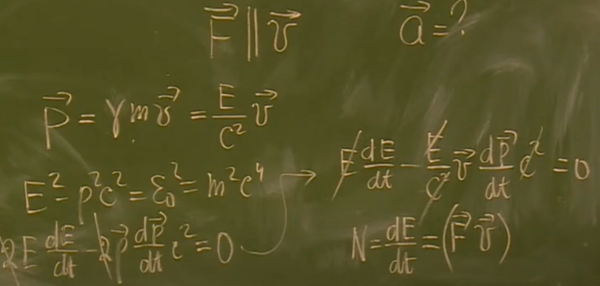 F⃗ ∥ v⃗    a⃗ = ?
p⃗ = γmv⃗ = E/c² v⃗
E² - p²c² = ε₀² = m²c⁴
2E dE/dt - 2p⃗ dp⃗/dt c² = 0
E dE/dt - E/c² v⃗ dp⃗/dt c² = 0
N = dE/dt = (F⃗ v⃗)